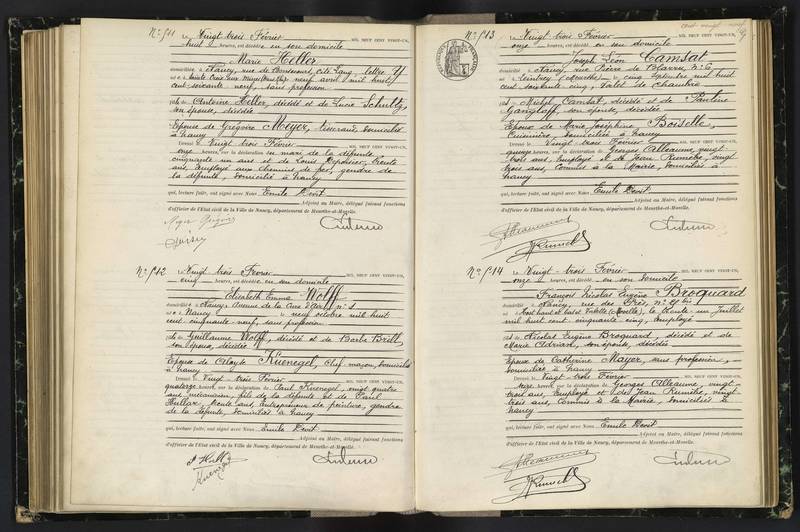 N° 511
Le Vingt trois Février MIL NEUF CENT VINGT-UN,
huit heures, est décédée en son domicile
Marie Heller
domiciliée à Nancy, rue de
née à Sainte Croix aux Mines avril mil huit
cent soixante neuf, sans profession
fille de Antoine Heller, décédé et de Lucie Schultz,
son épouse, décédée
Epouse de Grégoire Meyer, tisserand, domicilié
à Nancy
Dressé le Vingt trois Février MIL NEUF CENT VINGT-UN,
onze heures, sur la déclaration du mari de la défunte
cinquante un ans et de Louis trente
ans, employé aux chemins de fer, gendre de
la défunte, domiciliés à Nancy
qui, lecture faite, ont signé avec Nous Emile
Adjoint au Maire, délégué faisant fonctions
d'officier de l'Etat civil de la Ville de Nancy, département de Meurthe-et-Moselle.
N° 512
Le Vingt trois Février MIL NEUF CENT VINGT-UN,
cinq heures, est décédée en son domicile
Elisabeth Emma Wolff
domiciliée à Nancy,
née à Nancy le neuf octobre mil huit
cent cinquante neuf, sans profession
fille de Guillaume Wolff, décédé et de Barbe Brill,
son épouse, décédée
Epouse de Küenegel, chef maçon, domicilié
à Nancy
Dressé le Vingt trois Février MIL NEUF CENT VINGT-UN,
quatorze heures, sur la déclaration de Paul Küenegel, vingt quatre
ans mécanicien, fils de la défunte et de Paul
trente ans, entrepreneur de peinture, gendre
de la défunte, domiciliés à Nancy
qui, lecture faite, ont signé avec Nous Emile
Adjoint au Maire, délégué faisant fonctions
d'officier de l'Etat civil de la Ville de Nancy, département de Meurthe-et-Moselle.
N° 513
Le Vingt-trois Février MIL NEUF CENT VINGT-UN,
onze heures, est décédé en son domicile
Joseph Léon Camsat
domicilié à Nancy, rue Pierre de Blarru, N° 6
né à Leintrey (Meurthe) le cinq mil huit
cent soixante cinq, valet de chambre
fils de Michel Camsat, décédé et de Pauline
Gangloff, son épouse, décédée
Epoux de Marie Joséphine Boiselle,
cuisinière, domiciliée à Nancy
Dressé le Vingt trois Février MIL NEUF CENT VINGT-UN,
quinze heures, sur la déclaration de Georges Alleaume, vingt
trois ans, employé et de Jean vingt
trois ans, Commis à la Mairie, domiciliés à
Nancy
qui, lecture faite, ont signé avec Nous Emile
Adjoint au Maire, délégué faisant fonctions
d'officier de l'Etat civil de la Ville de Nancy, département de Meurthe-et-Moselle.
N° 514
Le Vingt-trois Février MIL NEUF CENT VINGT-UN,
onze heures, est décédé en son domicile
François Nicolas Eugène Broquard
domicilié à Nancy, rue des n° 21 bis
né à (Moselle), le trente un juillet
mil huit cent cinquante cinq, employé
fils de Nicolas Eugène Broquard, décédé et de
Marie Adrian, son épouse, décédée
Epoux de Catherine Mayer, sans profession,
domiciliée à Nancy
Dressé le Vingt-trois Février MIL NEUF CENT VINGT-UN,
heures, sur la déclaration de Georges Alleaume, vingt-
trois ans, employé et de Jean vingt
trois ans, Commis à la Mairie, domiciliés à
Nancy
qui, lecture faite, ont signé avec Nous Emile
Adjoint au Maire, délégué faisant fonctions
d'officier de l'Etat civil de la Ville de Nancy, département de Meurthe-et-Moselle.